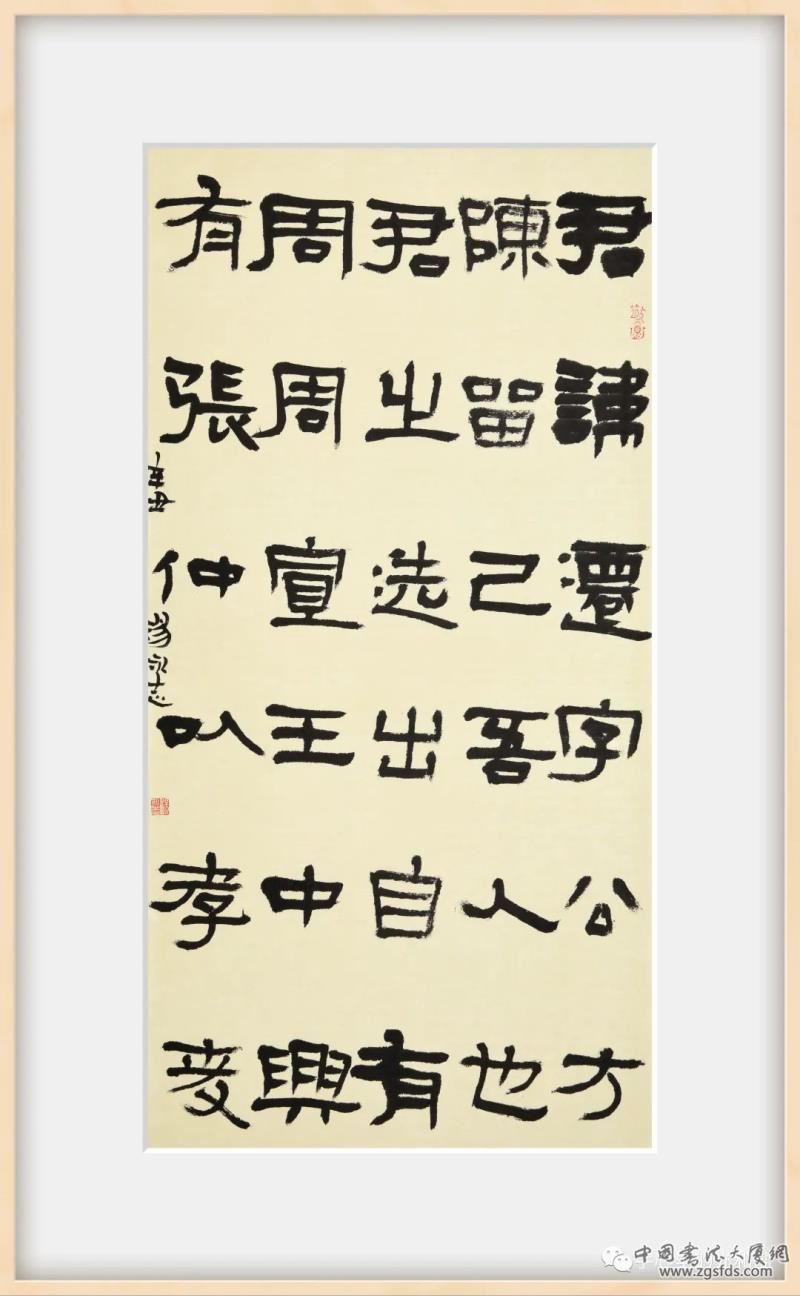 君諱遷字公方
陳留己吾人也
君之先出自有
周周宣王中興
有張仲以孝友
辛丑
永志
中国書法大厦網
www.zgsfds.com